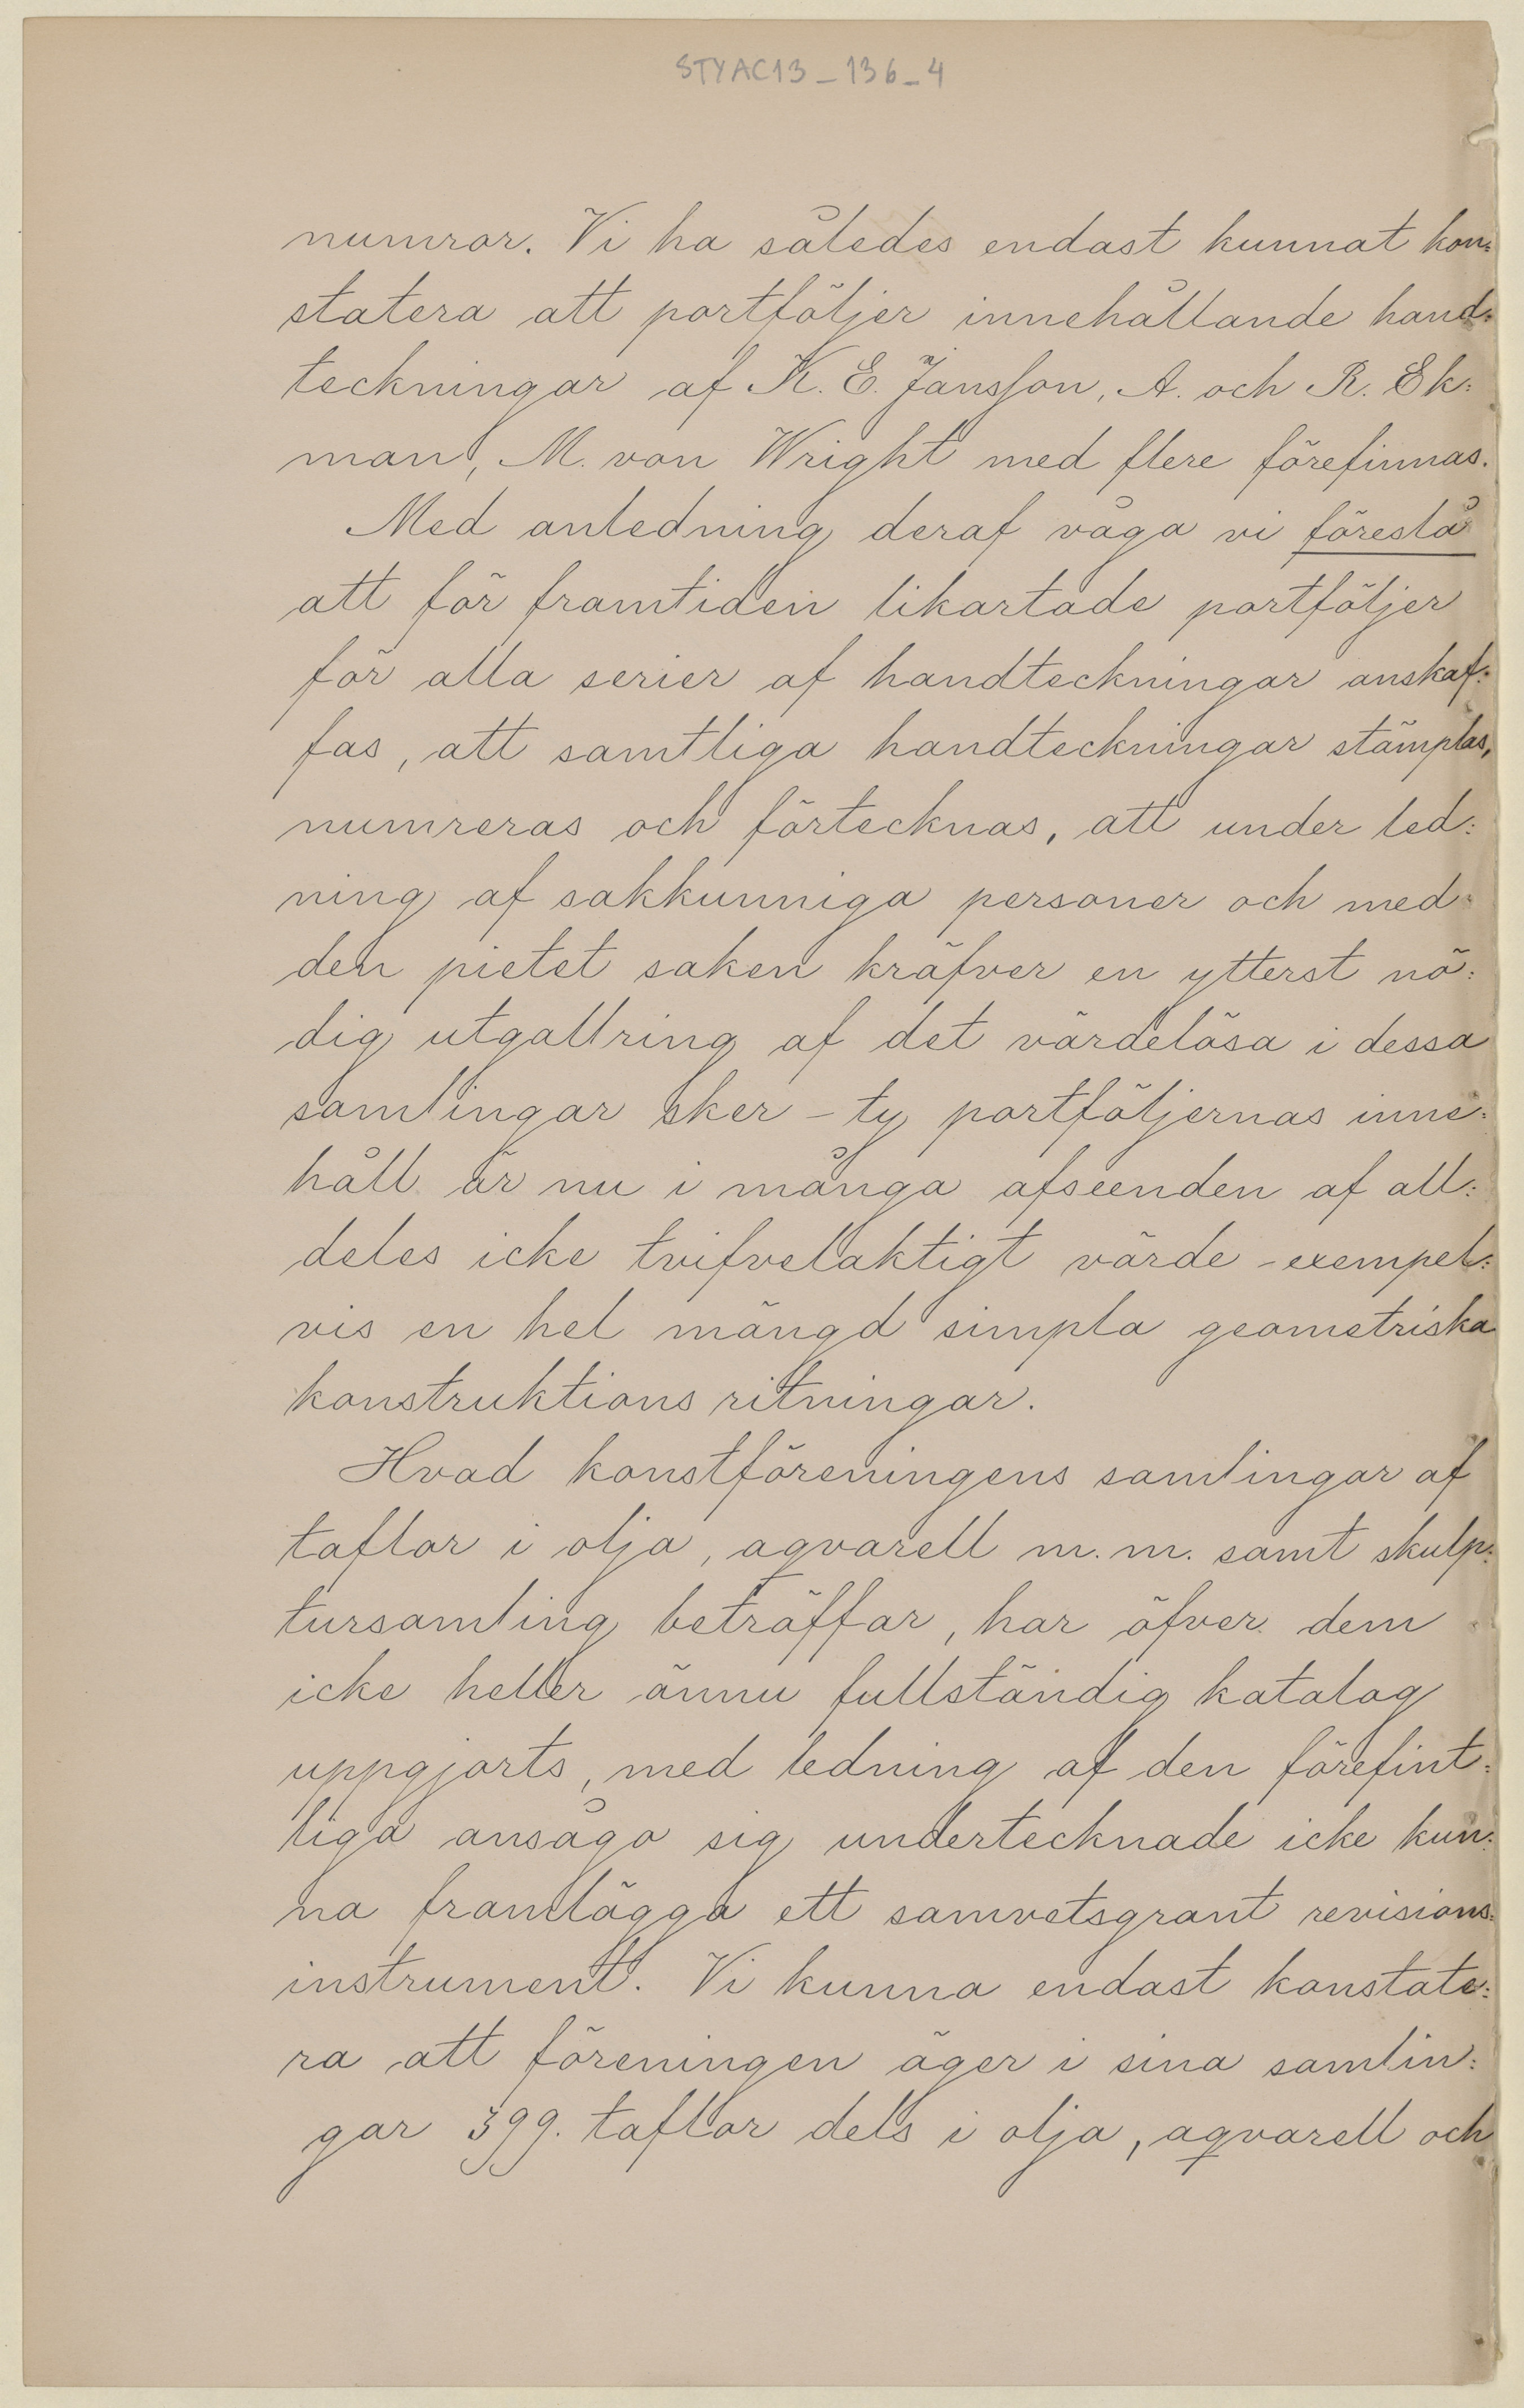 STYAC13_136_4
numror. Vi ha således endast kunnat kon:
statera att portföljer innehållande hand:
teckningar af K. E. Jansson, A. och R. Ek:
man, M. von Wright med flere förefinnas.
Med anledning deraf våga vi föreslå
att för framtiden likartade portföljer
för alla serier af handteckningar anskaf:
fas, att samtliga handteckningar stämplas,
numreras och förtecknas, att under led:
ning af sakkunniga personer och med
den pietet saken kräfver en ytterst nö:
dig utgallring af det värdelösa i dessa
samlingar sker – ty portföljernas inne:
håll är nu i många afseenden af all:
deles icke tvifvelaktigt värde – exempel:
vis en hel mängd simpla geometriska
konstruktions ritningar.
Hvad konstföreningens samlingar af
taflor i olja, aqvarell m. m. samt skulp:
tursamling beträffar, har öfver dem
icke heller ännu fullständig katalog
uppgjorts, med ledning af den förefint:
liga ansågo sig undertecknade icke kun:
na framlägga ett samvetsgrant revisions:
instrument. Vi kunna endast konstate:
ra att föreningen äger i sina samlin:
gar 399. taflor dels i olja, aqvarell och